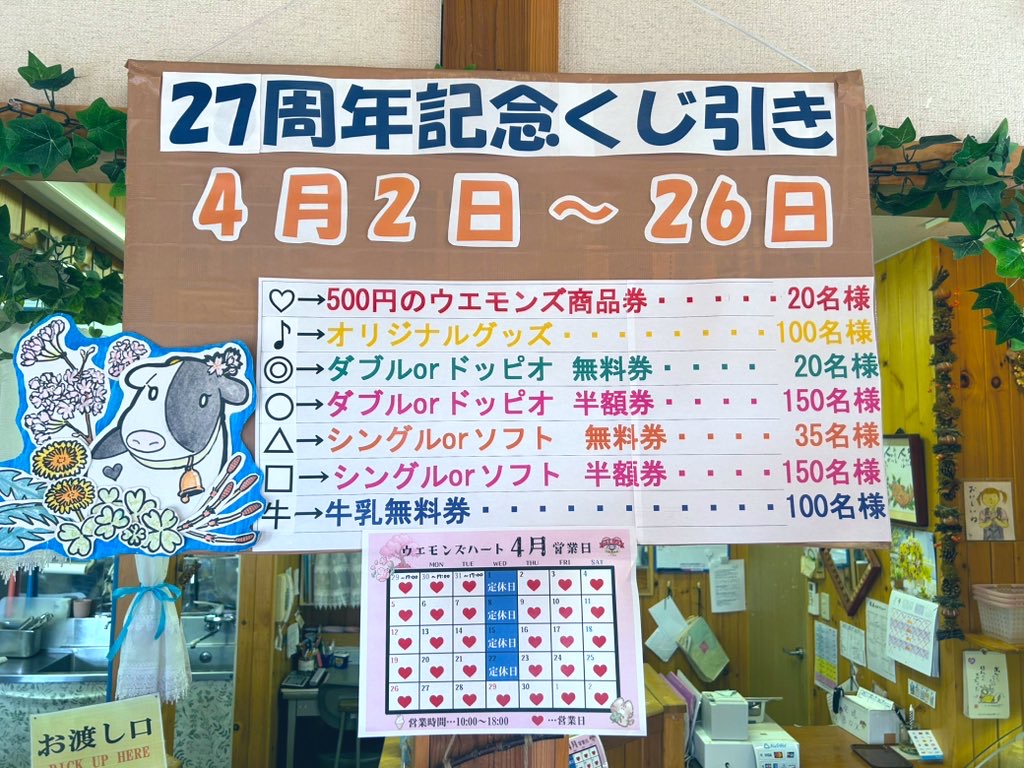 27周年記念くじ引き
4月2日～26日
♡→500円のウエモンズ商品券・・・・・20名様
♪→オリジナルグッズ・・・・・・・・100名様
◎→ダブルorドッピオ 無料券・・・・ 20名様
○→ダブルorドッピオ 半額券・・・・150名様
△→シングルorソフト 無料券・・・・ 35名様
□→シングルorソフト 半額券・・・・150名様
牛→牛乳無料券・・・・・・・・・・・100名様
ウエモンズハート 4月 営業日
MON TUE WED THU FRI SAT
29～17:00 30～17:00 31～17:00 1 定休日 2 3 4
5 6 7 8 定休日 9 10 11
12 13 14 15 定休日 16 17 18
19 20 21 22 定休日 23 24 25
26 27 28 29 30 1 2
営業時間…10:00～18:00 ♥…営業日
お渡し口
PICK UP HERE